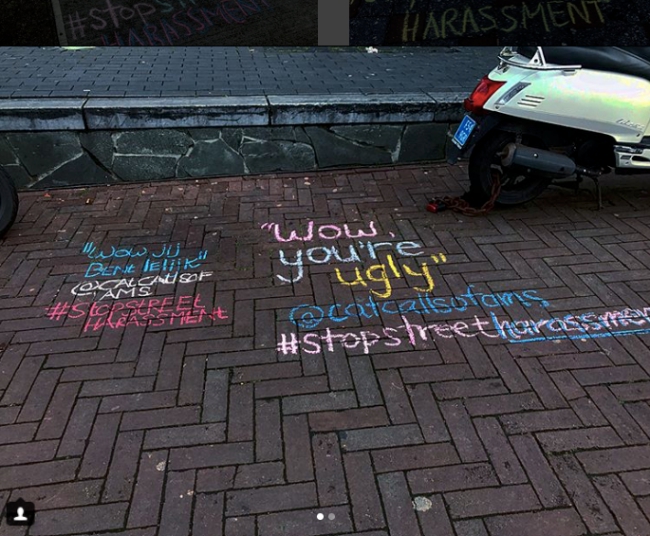 HARASSMENT
HARASSMENT
"WOW JIJ
BENT lelijk"
@CATCALLSOF
AMS
#STOPSTREET
HARASSMENT
"Wow,
you're
ugly"
@catcallsofams
#stopstreetharassmen